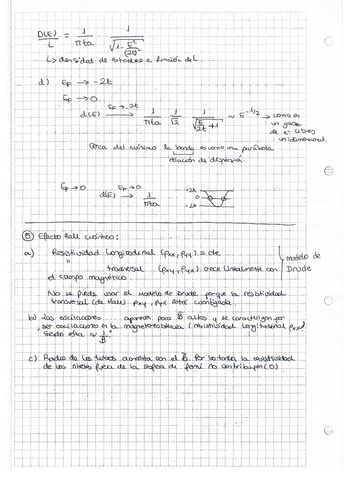 D(E)/L = 1/πta 1/√(1 - E²/(2t)²)
↳ densidad de estados en función de L.
d) E_F → -2t
E_F → 0
d(E) E_F → -2t ⟶ 1/πta 1/√2 1/√(E/2t + 1) ~ E^(-1/2) → como en un gas de e⁻ libres unidimensional.
Cerca del mínimo la banda es como una parábola
relación de dispersión.
E_F → 0 d(E) E_F → 0 ⟶ 1/πta +2t 0 -2t
⑤ Efecto Hall cuántico:
a) Resistividad longitudinal (ρxx, ρyy) = cte
" transversal (ρxy, ρyx) crece linealmente con modelo de Drude
el campo magnético
No se puede usar el modelo de Drude porque la resistividad
transversal (de Hall) ρxy, ρyx está cuantizada.
b) Las oscilaciones aparecen para B⃗ altos y se caracterizan por
ser oscilaciones en la magnetorresistencia (resistividad longitudinal ρxx)
siendo ésta ∝ 1/B⃗.
c) Radio de los tubos aumenta con el B⃗. Por lo tanto, la resistividad
de los niveles fuera de la esfera de Fermi no contribuyen (0).